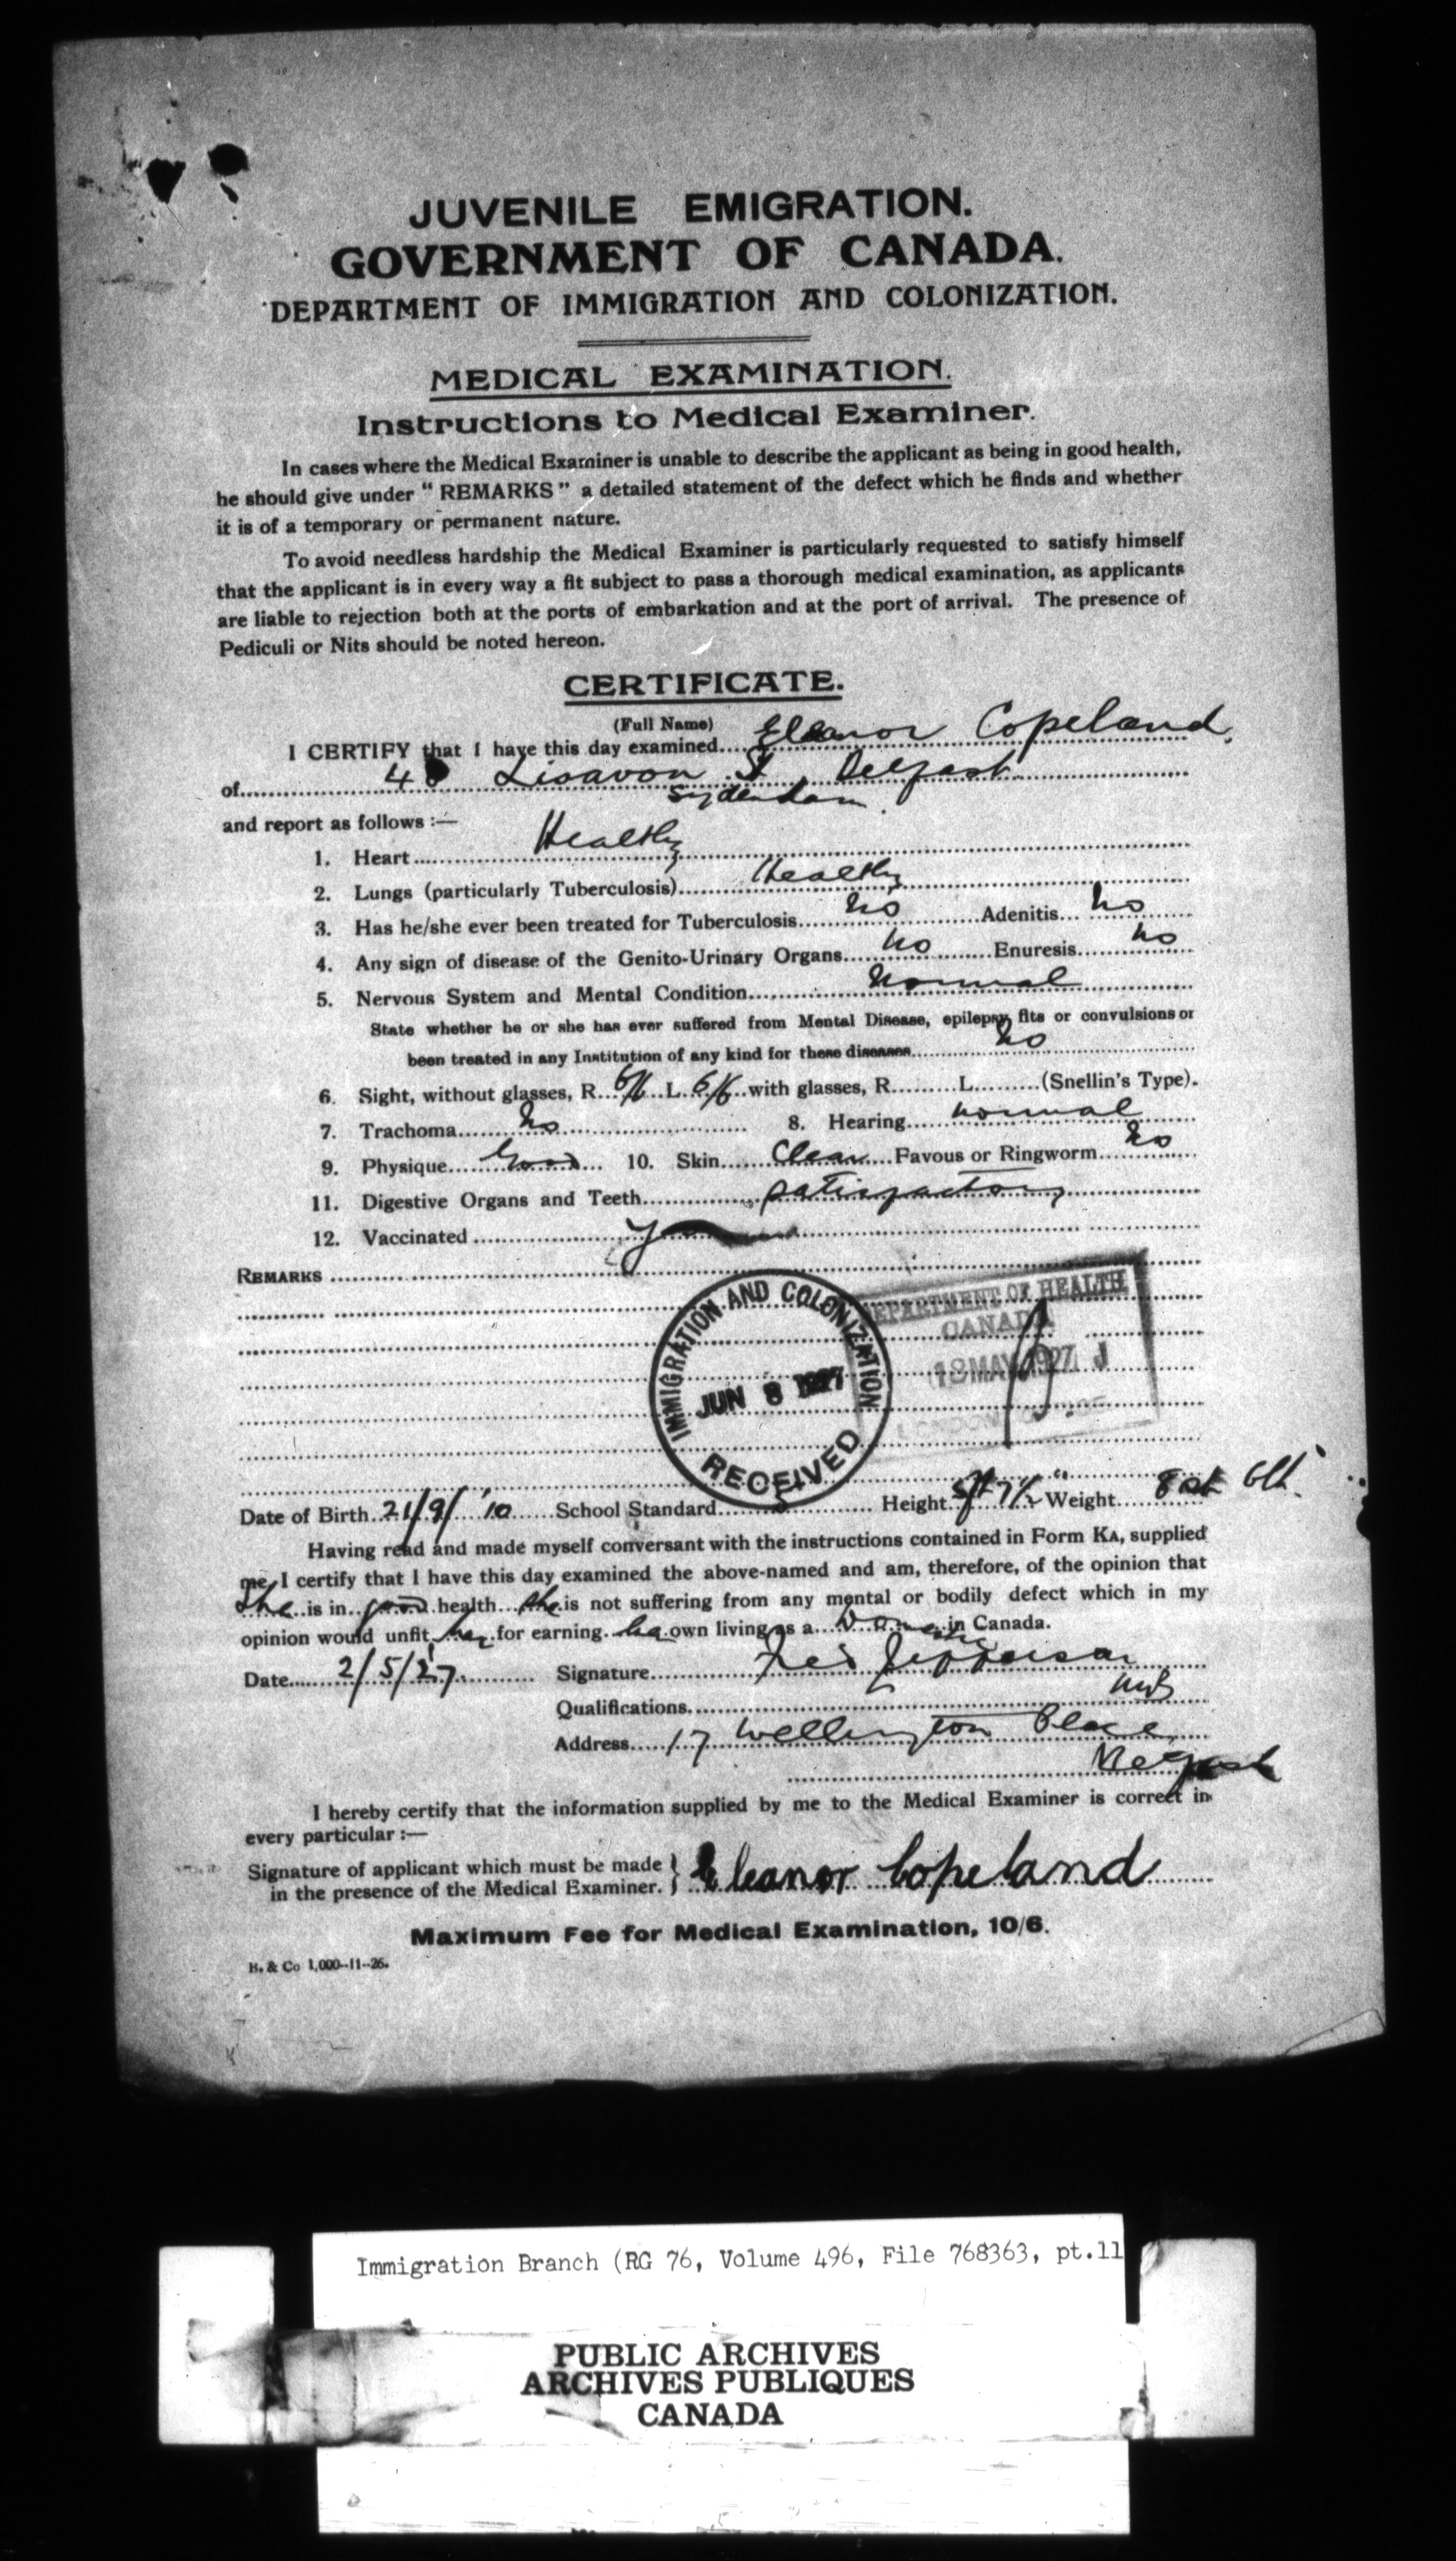 JUVENILE EMIGRATION.
GOVERNMENT OF CANADA.
DEPARTMENT OF IMMIGRATION AND COLONIZATION.
MEDICAL EXAMINATION.
Instructions to Medical Examiner.
In cases where the Medical Examiner is unable to describe the applicant as being in good health,
he should give under "REMARKS" a detailed statement of the defect which he finds and whether
it is of a temporary or permanent nature.
To avoid needless hardship the Medical Examiner is particularly requested to satisfy himself
that the applicant is in every way a fit subject to pass a thorough medical examination, as applicants
are liable to rejection both at the ports of embarkation and at the port of arrival. The presence of
Pediculi or Nits should be noted hereon.
CERTIFICATE.
(Full Name)
I CERTIFY that I have this day examined.... Eleanor Copeland.
of.... Lisavon St, Belfast
Sydenham.
and report as follows :—
1. Heart.... Healthy
2. Lungs (particularly Tuberculosis).... Healthy
3. Has he/she ever been treated for Tuberculosis.... No ....Adenitis... No
4. Any sign of disease of the Genito-Urinary Organs.... No ....Enuresis.... No
5. Nervous System and Mental Condition.... Normal
State whether he or she has ever suffered from Mental Disease, epilepsy, fits or convulsions or
been treated in any Institution of any kind for these diseases.... No
6. Sight, without glasses, R... 6/6 ..L.. 6/6 ..with glasses, R.........L.........(Snellin's Type).
7. Trachoma.... No .... 8. Hearing.... normal
9. Physique.... Good ... 10. Skin.... Clean ....Favous or Ringworm.... No
11. Digestive Organs and Teeth.... satisfactory
12. Vaccinated ....
REMARKS ....
IMMIGRATION AND COLONIZATION
JUN 8 1927
RECEIVED
DEPARTMENT OF HEALTH
CANADA
18 MAY 1927
LONDON
Date of Birth.. 21/9/'10 ....School Standard.... Height.. 5ft 7½" Weight.... 8 st 6 lb.
Having read and made myself conversant with the instructions contained in Form KA, supplied
me, I certify that I have this day examined the above-named and am, therefore, of the opinion that
She ..is in.. good .health.. she .is not suffering from any mental or bodily defect which in my
opinion would unfit. her .for earning. her own living as a.... Domestic in Canada.
Date.... 2/5/27 .... Signature.... Fred Jefferson
Qualifications.... MB
Address.... 17 Wellington Place
Belfast
I hereby certify that the information supplied by me to the Medical Examiner is correct in
every particular :—
Signature of applicant which must be made } Eleanor Copeland
in the presence of the Medical Examiner. }
Maximum Fee for Medical Examination, 10/6.
H. & Co 1,000--11--26.
Immigration Branch (RG 76, Volume 496, File 768363, pt.11
PUBLIC ARCHIVES
ARCHIVES PUBLIQUES
CANADA